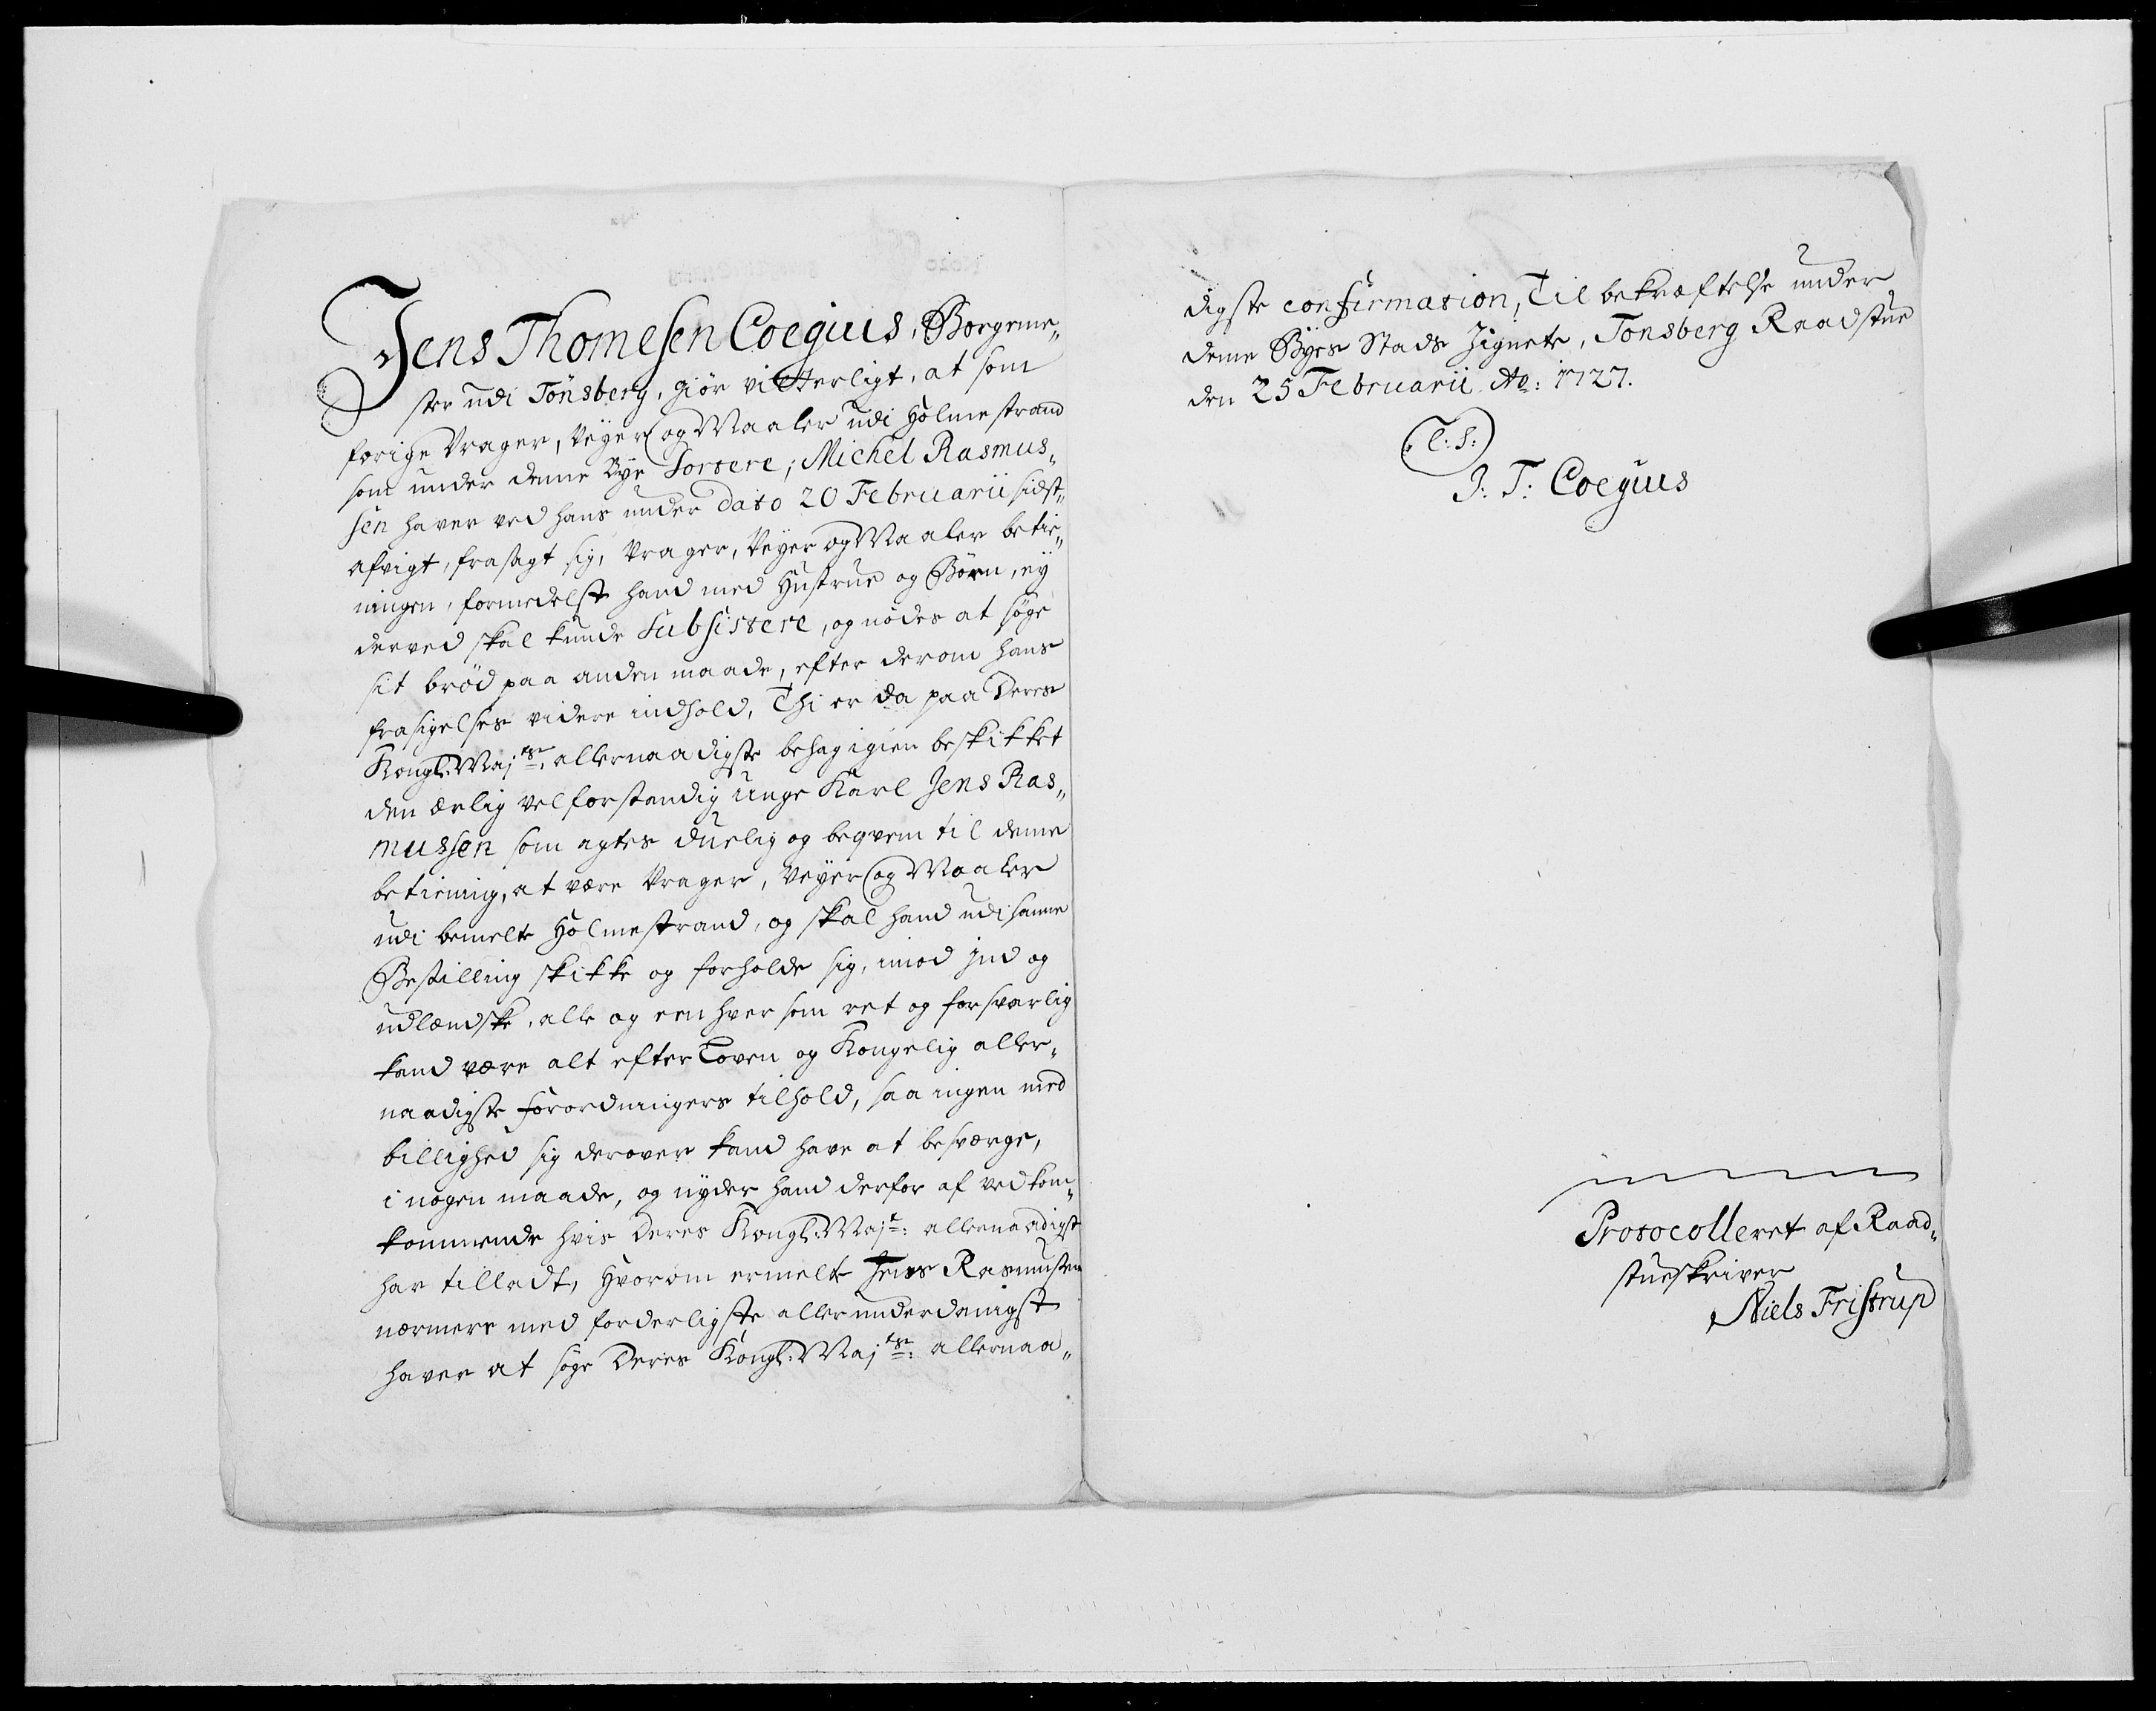 Jens Thomesen Coegius, Borgeme„
ster udi Tönsberg, giör vitterligt, at som
forige Vrager, Veyer og Maaler udi Holmestrand
som under denne Bye Sortere, Michel Rasmus„
sen haver ved hans under dato 20 Februarii sidst„
afvigt, frasagt sig, Vrager, Veyer og Maaler betie„
ningen, formedelst hand med Hustrue og Börn, ey
derved skal kunde Subsistere, og nödes at söge
sit bröd paa anden maade, efter derom hans
frasigelses videre indhold, Thi er da paa Deres
Kongl: Maj:ts allernaadigste behag igien beskikket
den ærlig velforstandig unge Karl Jens Ras„
mussen som agtes duelig og beqvem til denne
betiening, at være Vrager, Veyer og Maaler
udi bemelte Holmestrand, og skal hand udi samme
Bestilling skikke og forholde sig, imod Jnd og
udlændske, alle og een hver som ret og forsvarlig
kand være alt efter Loven og Kongelig aller„
naadigste forordningers tilhold, saa ingen med
billighed sig derover kand have at besværge,
i nogen maade, og nyder hand derfor af vedkom„
kommende hvis Deres Kongl: Maj:t: allernaadigst
har tilladt, Hvorom ermelte Jens Rasmussen
nærmere med forderligste allerunderdanigst
haver at söge Deres Kongl: Maj:ts: allernaa„
digste confirmation, Til bekræftelse under
denne Byes Stads Zignete, Tonsberg Raadstue
den 25 Februarii Ao: 1727.
(L: S:)
J: T: Coegius
Protocolleret af Raad„
stueskriver
Niels Fristrup